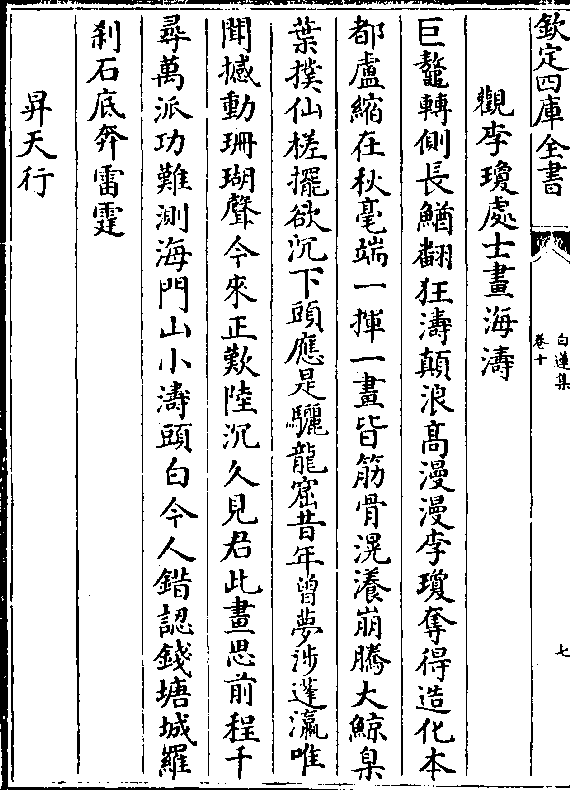 欽定四庫全書
白蓮集
卷十
七
觀李瓊處士畫海濤
巨鼇轉側長鰌翻狂濤顛浪高漫漫李瓊奪得造化本
都盧縮在秋毫端一揮一畫皆筋骨滉瀁崩騰大鯨臬
葉撲仙槎擺欲沉下頭應是驪龍窟昔年曾夢涉蓬瀛唯
聞撼動珊瑚聲今來正歎陸沉久見君此畫思前程千
尋萬派功難測海門山小濤頭白今人錯認錢塘城羅
刹石底奔雷霆
昇天行